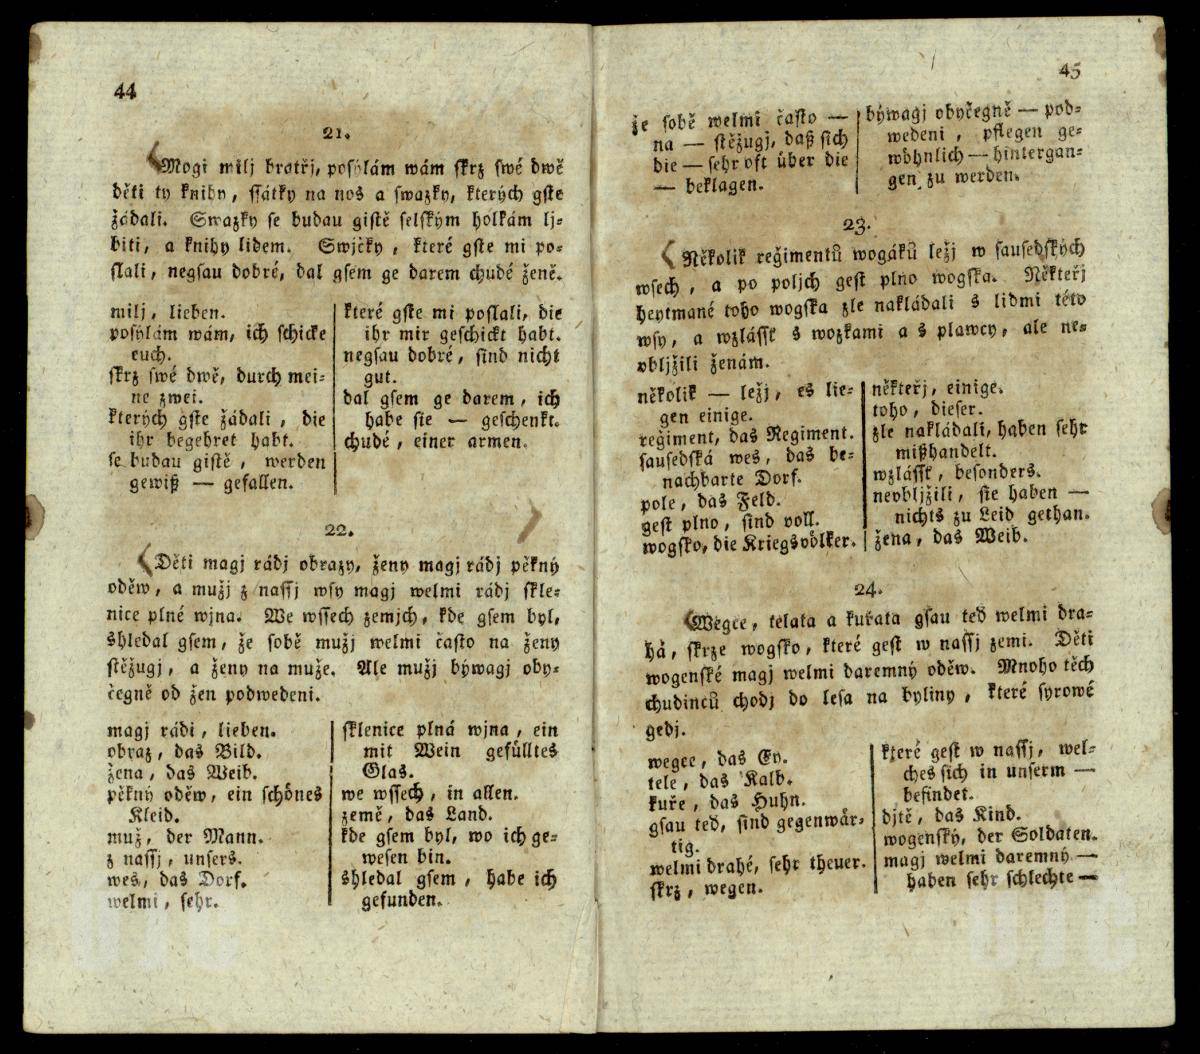 44
21.
Mogi milj bratřj, posýlám wám skrz swé dwě
děti ty knihy, ssátky na nos a swazky, kterých gste
žádali. Swazky se budau gistě selským holkám lj-
biti, a knihy lidem. Swjčky, které gste mi po-
slali, negsau dobré, dal gsem ge darem chudé ženě.
milj, lieben.
posýlám wám, ich schicke
euch.
skrz swé dwě, durch mei-
ne zwei.
kterých gste žádali, die
ihr begehret habt.
se budau gistě, werden
gewiß — gefallen.
které gste mi poslali, die
ihr mir geschickt habt.
negsau dobré, sind nicht
gut.
dal gsem ge darem, ich
habe sie — geschenkt.
chudé, einer armen.
22.
Děti magj rádj obrazy, ženy magj rádj pěkný
oděw, a mužj z nassj wsy magj welmi rádj skle-
nice plné wjna. We wssech zemjch, kde gsem byl,
shledal gsem, že sobě mužj welmi často na ženy
stěžugj, a ženy na muže. Ale mužj býwagj oby-
čegně od žen podwedeni.
magj rádi, lieben.
obraz, das Bild.
žena, das Weib.
pěkný oděw, ein schönes
Kleid.
muž, der Mann.
z nassj, unsers.
wes, das Dorf.
welmi, sehr.
sklenice plná wjna, ein
mit Wein gefülltes
Glas.
we wssech, in allen.
země, das Land.
kde gsem byl, wo ich ge-
wesen bin.
shledal gsem, habe ich
gefunden.
45
že sobě welmi často —
na — stěžugj, daß sich
die — sehr oft über die
— beklagen.
býwagj obyčegně — pod-
wedeni, pflegen ge-
wöhnlich — hintergan-
gen zu werden.
23.
Několik režimentů wogáků ležj w sausedských
wsech, a po poljch gest plno wogska. Někteřj
heytmané toho wogska zle nakládali s lidmi této
wsy, a wzlásst s wozkami a s plawcy, ale ne-
obljžili ženám.
několik — ležj, es lie-
gen einige.
režiment, das Regiment.
sausedská wes, das be-
nachbarte Dorf.
pole, das Feld.
gest plno, sind voll.
wogsko, die Kriegsvölker.
někteřj, einige.
toho, dieser.
zle nakládali, haben sehr
mißhandelt.
wzlásst, besonders.
neobljžili, sie haben —
nichts zu Leid gethan.
žena, das Weib.
24.
Wegce, telata a kuřata gsau teď welmi dra-
há, skrze wogsko, které gest w nassj zemi. Děti
wogenské magj welmi daremný oděw. Mnoho těch
chudinců chodj do lesa na byliny, které syrowé
gedj.
wegce, das Ey.
tele, das Kalb.
kuře, das Huhn.
gsau teď, sind gegenwär-
tig.
welmi drahé, sehr theuer.
skrz, wegen.
které gest w nassj, wel-
ches sich in unserm —
befindet.
djtě, das Kind.
wogenský, der Soldaten.
magj welmi daremný —
haben sehr schlechte —